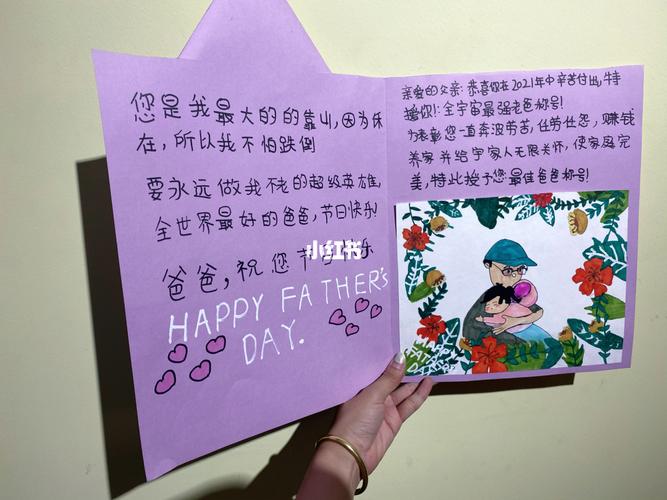 您是我最大的的靠山,因为你
在,所以我不怕跌倒
要永远做我不老的超级英雄,
全世界最好的爸爸,节日快乐!
爸爸,祝您节日快乐
HAPPY FATHER's
DAY.
小红书
亲爱的父亲:恭喜你在2021年中辛苦付出,特
授你!:全宇宙最强老爸称号!
为表彰您一直奔波劳苦,任劳任怨,赚钱
养家并给予家人无限关怀,使家庭完
美,特此授予您最佳爸爸称号!
HAPPY
FATHER'S
DAY